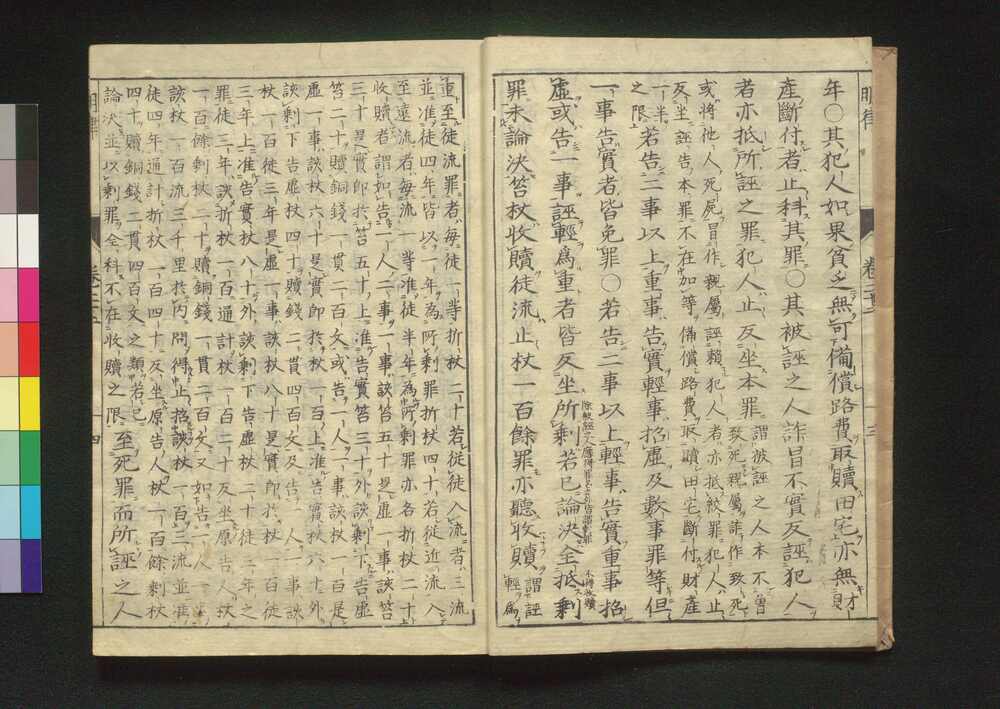 明律
年○其犯人如果貧乏無可備償路費取贖田宅亦無財
產斷付者止科其罪○其被誣之人詐冒不實反誣犯人
者亦抵所誣之罪犯人止反坐本罪
謂被誣之人本不曾
致死親屬詐作致死
或將他人死屍冒作親屬誣賴犯人者亦抵絞罪犯人止
反坐誣告本罪不在加等備償路費取贖田宅斷付財產
一半
之限
若告二事以上重事告實輕事招虛及數事罪等但
一事告實者皆免罪○若告二事以上輕事告實重事招
虛或告一事誣輕爲重者皆反坐所剩若已論決全抵剩
罪未論決笞杖收贖徒流止杖一百餘罪亦聽收贖
謂誣
輕爲
重至徒流罪者每徒一等折杖二十若從徒入流者三流
並准徒四年皆以一年為所剩罪折杖四十若從近流入
至遠流者每流一等准徒半年為所剩罪亦各折杖二十
收贖者謂如告一人二事一事該笞五十是虛一事該笞
三十是實即於笞五十上准告實笞三十外該剩下告虛
笞二十贖銅錢一貫二百文或告一人一事該杖一百是
虛一事該杖六十是實即於杖一百上准告實杖六十外
該剩下告虛杖四十贖錢二貫四百文及告一人一事該
杖一百徒三年是虛一事該杖八十是實即於杖一百徒
三年上准告實杖八十外該剩下告虛杖二十徒三年之
罪徒三年該折杖一百通計杖一百二十反坐原告人杖
一百餘剩杖二十贖銅錢一貫二百文又如告一人一事
該杖一百流三千里於內問得止招該杖一百三流並准
徒四年通計折杖一百四十反坐原告人杖一百餘剩杖
四十贖銅錢二貫四百文之類若已
論決並以剩罪全科不在收贖之限
至死罪而所誣之人
明律
四